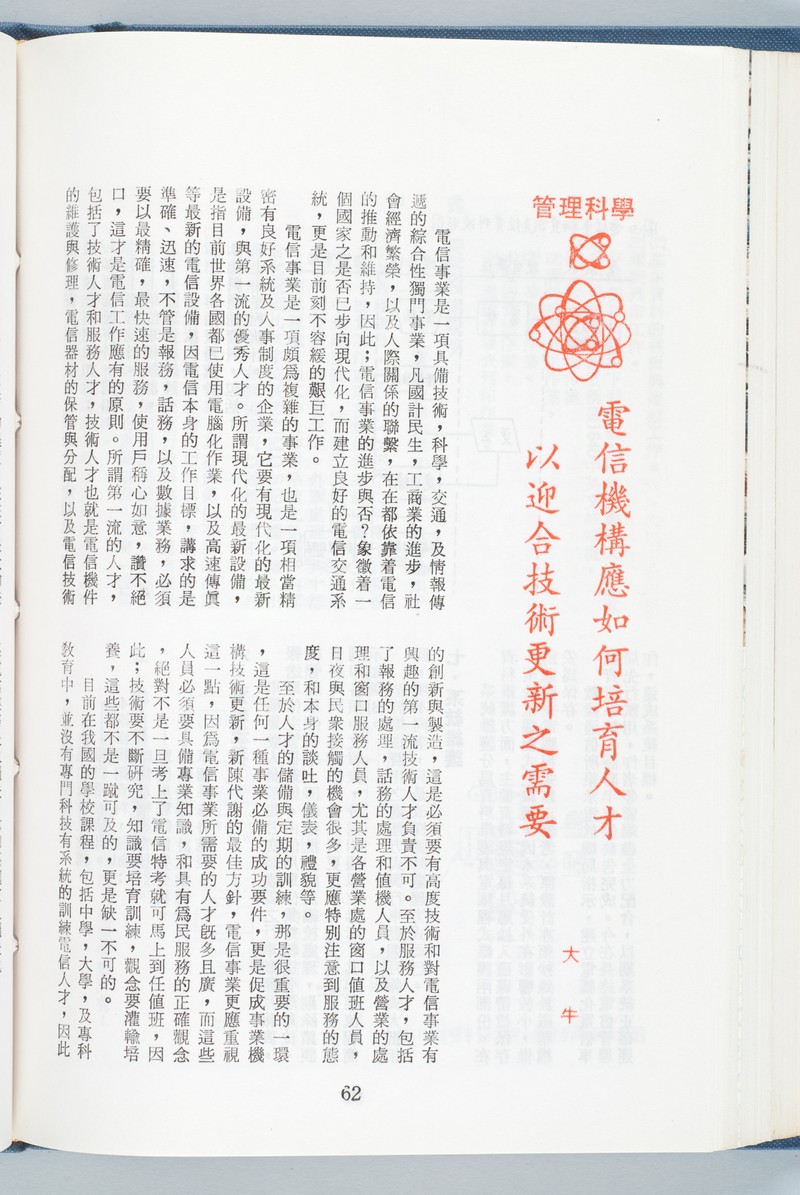 管理科學
電信機構應如何培育人才
以迎合技術更新之需要
大牛
電信事業是一項具備技術，科學，交通，及情報傳
遞的綜合性獨門事業，凡國計民生，工商業的進步，社
會經濟繁榮，以及人際關係的聯繫，在在都依靠着電信
的推動和維持，因此；電信事業的進步與否？象徵着一
個國家之是否已步向現代化，而建立良好的電信交通系
統，更是目前刻不容緩的艱巨工作。
電信事業是一項頗為複雜的事業，也是一項相當精
密有良好系統及人事制度的企業，它要有現代化的最新
設備，與第一流的優秀人才。所謂現代化的最新設備，
是指目前世界各國都已使用電腦化作業，以及高速傳眞
等最新的電信設備，因電信本身的工作目標，講求的是
準確、迅速，不管是報務，話務，以及數據業務，必須
要以最精確，最快速的服務，使用戶稱心如意，讚不絕
口，這才是電信工作應有的原則。所謂第一流的人才，
包括了技術人才和服務人才，技術人才也就是電信機件
的維護與修理，電信器材的保管與分配，以及電信技術
的創新與製造，這是必須要有高度技術和對電信事業有
興趣的第一流技術人才負責不可。至於服務人才，包括
了報務的處理，話務的處理和值機人員，以及營業的處
理和窗口服務人員，尤其是各營業處的窗口值班人員，
日夜與民衆接觸的機會很多，更應特别注意到服務的態
度，和本身的談吐，儀表，禮貌等。
至於人才的儲備與定期的訓練，那是很重要的一環
，這是任何一種事業必備的成功要件，更是促成事業機
構技術更新，新陳代謝的最佳方針，電信事業更應重視
這一點，因爲電信事業所需要的人才旣多且廣，而這些
人員必須要具備專業知識，和具有爲民服務的正確觀念
，絕對不是一旦考上了電信特考就可馬上到任值班，因
此；技術要不斷研究，知識要培育訓練，觀念要灌輸培
養，這些都不是一蹴可及的，更是缺一不可的。
目前在我國的學校課程，包括中學，大學，及專科
敎育中，並沒有專門科技有系統的訓練電信人才，因此
62